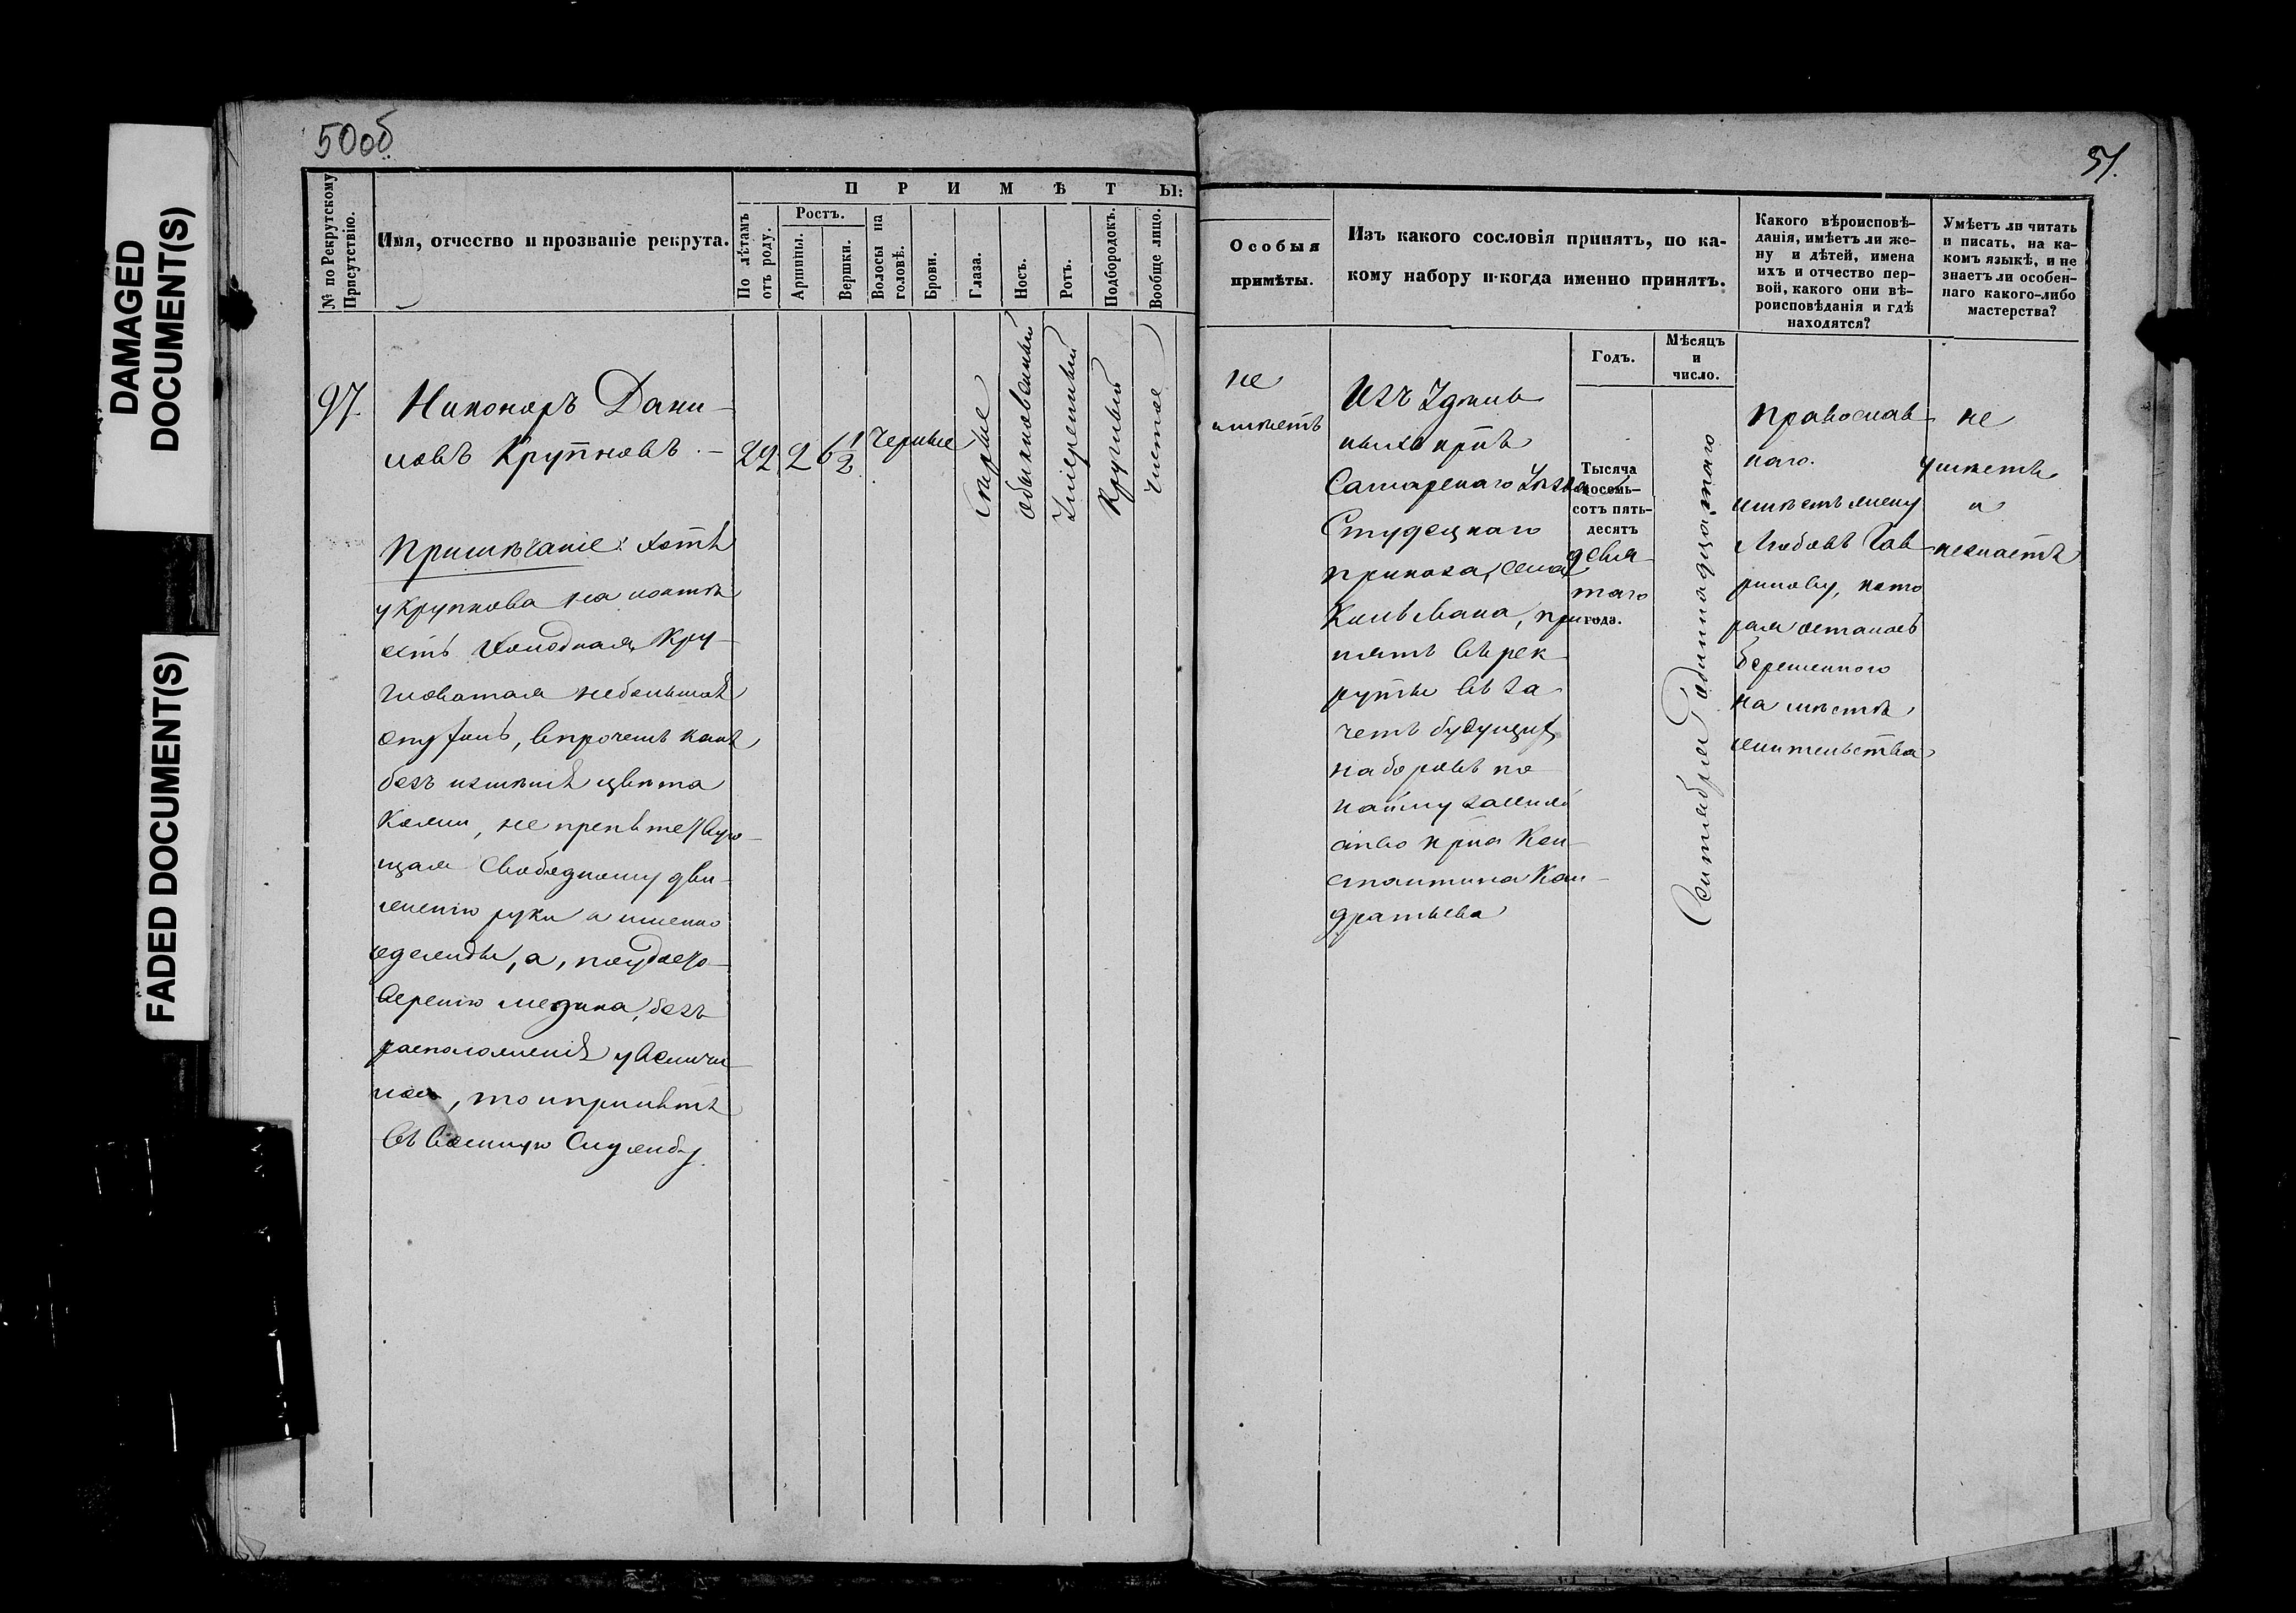 DAMAGED
DOCUMENT(S)
FADED DOCUMENT(S)
50об
№ по Рекрутскому
Присутствію.
Имя, отчество и прозваніе рекрута.
ПРИМѢТЫ:
По лѣтамъ
отъ роду.
Ростъ.
Аршины.
Вершки.
Волосы на
головѣ.
Брови.
Глаза.
Носъ.
Ротъ.
Подбородокъ.
Вообще лицо.
97.
Никоноръ Дани-
ловъ Крупновъ.-
22
2
6 1/2
Черные
Сѣрые
обыкновенный
Умеренный
Круглый
чистое
Примѣчаніе: хотя
у Крупнова на
есть Холодная, Кру-
гловатая небольшая
опухоль, впрочемъ какъ
безъ измѣн. цвѣта
Кожи, не препятствую-
щая Свободному дви-
женію руки и ношенію
одежды, а, по удосто-
веренію медика, безъ
расположенія увеличи
то и принятъ
въ Военную Службу.
51.
Особыя
примѣты.
Изъ какого сословія принятъ, по ка-
кому набору и когда именно принятъ.
Годъ.
Мѣсяцъ
и
число.
Какого вѣроисповѣ-
данія, имѣетъ ли же-
ну и дѣтей, имена
ихъ и отчество пер-
вой, какого они вѣ-
роисповѣданія и гдѣ
находятся?
Умѣетъ ли читать
и писать, на ка-
комъ языкѣ, и не
знаетъ ли особен-
наго какого-либо
мастерства?
не
имѣетъ
Изъ Удѣль
ныхъ крпъ
Самарскаго Уѣзда
Студецкаго
приказа, села
Кильмана, при
нятъ въ рек
руты въ за
четъ будущих
наборовъ по
найму за
крна Кон-
стантина Кон-
дратьева
Тысяча
восемь-
сотъ пять-
десятъ
девя-
таго
года.
Сентября Одиннадцатаго
Православ
наго.
имѣетъ жену
Любовь Гав
рилову, кото
рая осталась
беременного
на мѣстѣ
жительства
не
умѣетъ
и
незнаетъ